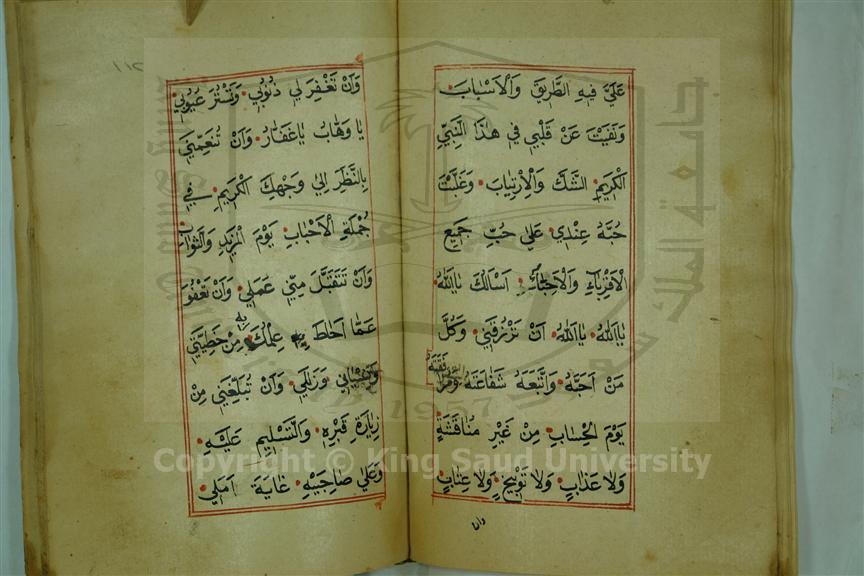 عَلَيَّ فِيهِ الطَّرِيقَ وَالْاَسْبَابَ
وَنَفَيْتَ عَنْ قَلْبِي فِي هٰذَا النَّبِيِّ
الْكَرِيمِ الشَّكَّ وَالْاِرْتِيَابَ وَغَلَّبْتَ
حُبَّهُ عِنْدِي عَلٰى حُبِّ جَمِيعِ
الْاَقْرِبَاءِ وَالْاَحِبَّاءِ اَسْاَلُكَ يَا اَللّٰهُ
يَا اَللّٰهُ يَا اَللّٰهُ اَنْ تَرْزُقَنِي وَكُلَّ
مَنْ اَحَبَّهُ وَاتَّبَعَهُ شَفَاعَتَهُ وَمُرَافَقَتَهُ
يَوْمَ الْحِسَابِ مِنْ غَيْرِ مُنَاقَشَةٍ
وَلَا عَذَابٍ وَلَا تَوْبِيخٍ وَلَا عِتَابٍ
وان
١١٢
وَاَنْ تَغْفِرَ لِي ذُنُوبِي وَتَسْتُرَ عُيُوبِي
يَا وَهَّابُ يَا غَفَّارُ وَاَنْ تُنَعِّمَنِي
بِالنَّظَرِ اِلٰى وَجْهِكَ الْكَرِيمِ فِي
جُمْلَةِ الْاَحْبَابِ يَوْمَ الْمَزِيدِ وَالثَّوَابِ
وَاَنْ تَتَقَبَّلَ مِنِّي عَمَلِي وَاَنْ تَعْفُوَ
عَمَّا اَحَاطَ عِلْمُكَ بِهِ مِنْ خَطِيئَتِي
وَنِسْيَانِي وَزَلَلِي وَاَنْ تُبَلِّغَنِي مِنْ
زِيَارَةِ قَبْرِهِ وَالتَّسْلِيمِ عَلَيْهِ
وَعَلٰى صَاحِبَيْهِ غَايَةَ اَمَلِي
جامعة الملك سعود
1957
Copyright © King Saud University